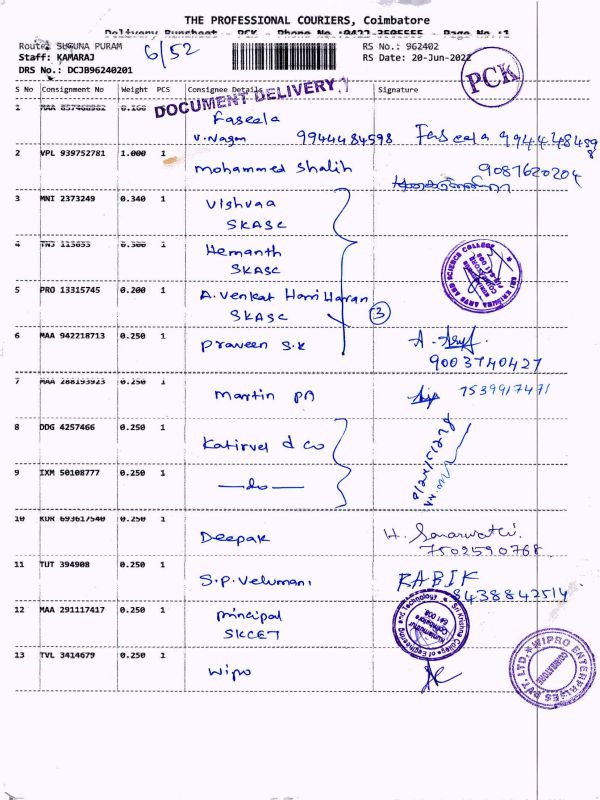 THE PROFESSIONAL COURIERS, Coimbatore
Delivery Runsheet - PCK - Phone No.:0422-3505555 - Page No.:1
Route: SUGUNA PURAM 6/52 RS No.: 962402
Staff: KAMARAJ RS Date: 20-Jun-2022
DRS No.: DCJB96240201 PCK
S No Consignment No Weight PCS Consignee Details Signature
DOCUMENT DELIVERY
1 MAA 857468982 0.100 Faseela
V.Nagam 9944484598 Faseela 9944484598
2 VPL 939752781 1.000 1 Mohammed Shalih 9087620204
3 MNI 2373249 0.340 1 Vishvaa
SKASC
4 TNJ 113653 0.300 1 Hemanth
SKASC
SRI KRISHNA ARTS AND SCIENCE COLLEGE
5 PRO 13315745 0.200 1 A. Venkat Hari Haran
SKASC 3
6 MAA 942218713 0.250 1 Praveen S.K
9003740427
7 MAA 288193923 0.250 1 Martin PA 7539917471
8 DDG 4257466 0.250 1 Katirvel & Co
9 IXM 50108777 0.250 1 —do—
10 KUR 693617540 0.250 1 Deepak H. Saraswathi
7502590768
11 TUT 394908 0.250 1 S.P. Velumani RABIK
8438842514
12 MAA 291117417 0.250 1 Principal
SKCET
Sri Krishna College of Engineering and Technology
Kuniamuthur
Coimbatore
641 008.
13 TVL 3414679 0.250 1 Wipro
WIPRO ENTERPRISES PVT. LTD.
COIMBATORE